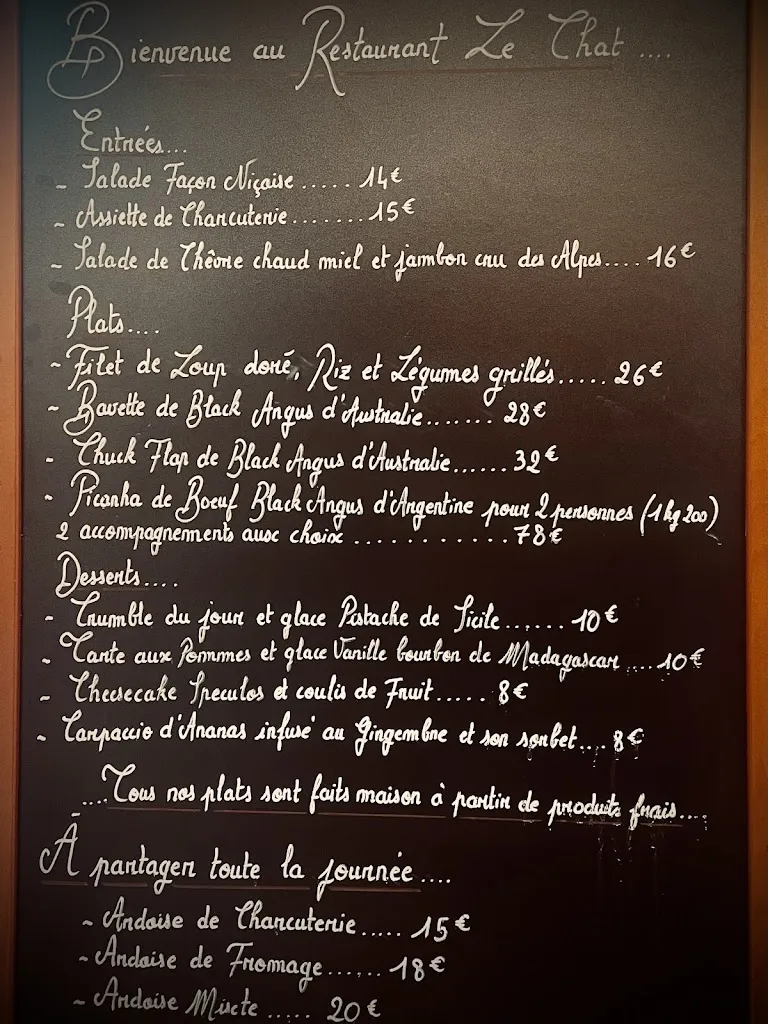 Bienvenue au Restaurant Le Chat ....
Entrées...
- Salade Façon Niçoise ..... 14€
- Assiette de Charcuterie ....... 15€
- Salade de Chèvre chaud miel et jambon cru des Alpes.... 16€
Plats....
- Filet de Loup doré, Riz et Légumes grillés..... 26€
- Bavette de Black Angus d'Australie....... 28€
- Chuck Flap de Black Angus d'Australie...... 32€
- Picanha de Boeuf Black Angus d'Argentine pour 2 personnes (1kg200)
2 accompagnements aux choix ........... 78€
Desserts....
- Crumble du jour et glace Pistache de Sicile...... 10€
- Tarte aux Pommmes et glace Vanille bourbon de Madagascar .... 10€
- Cheesecake Speculos et coulis de Fruit..... 8€
- Carpaccio d'Ananas infusé au Gingembre et son sorbet.... 8€
....Tous nos plats sont faits maison à partir de produits frais....
À partager toute la journée ....
~ Ardoise de Charcuterie ..... 15€
~ Ardoise de Fromage...... 18€
~ Ardoise Mixte ..... 20€